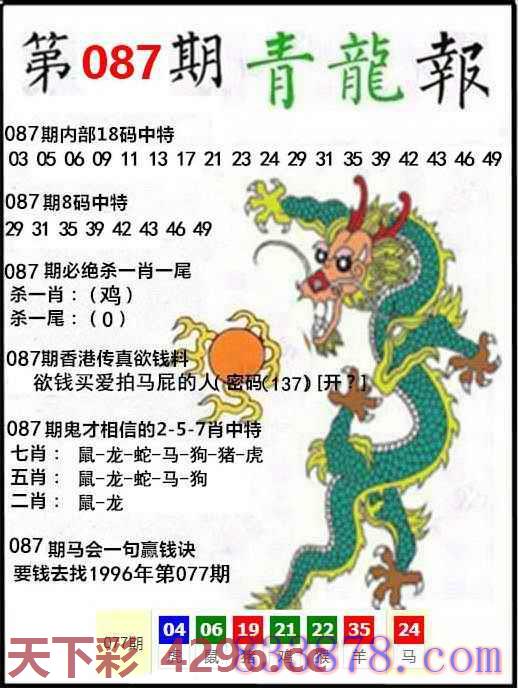 第087期青龍報
087期内部18码中特
03 05 06 09 11 13 17 21 23 24 29 31 35 39 42 43 46 49
087期8码中特
29 31 35 39 42 43 46 49
087期必绝杀一肖一尾
杀一肖：（鸡）
杀一尾：（0）
087期香港传真欲钱料
欲钱买爱拍马屁的人(密码(137)[开?]
087期鬼才相信的2-5-7肖中特
七肖： 鼠-龙-蛇-马-狗-猪-虎
五肖： 鼠-龙-蛇-马-狗
二肖： 鼠-龙
087期马会一句赢钱诀
要钱去找1996年第077期
077期 04 06 19 21 22 35 24
虎 鼠 猪 鸡 猴 羊 马
天下彩 4296.cc